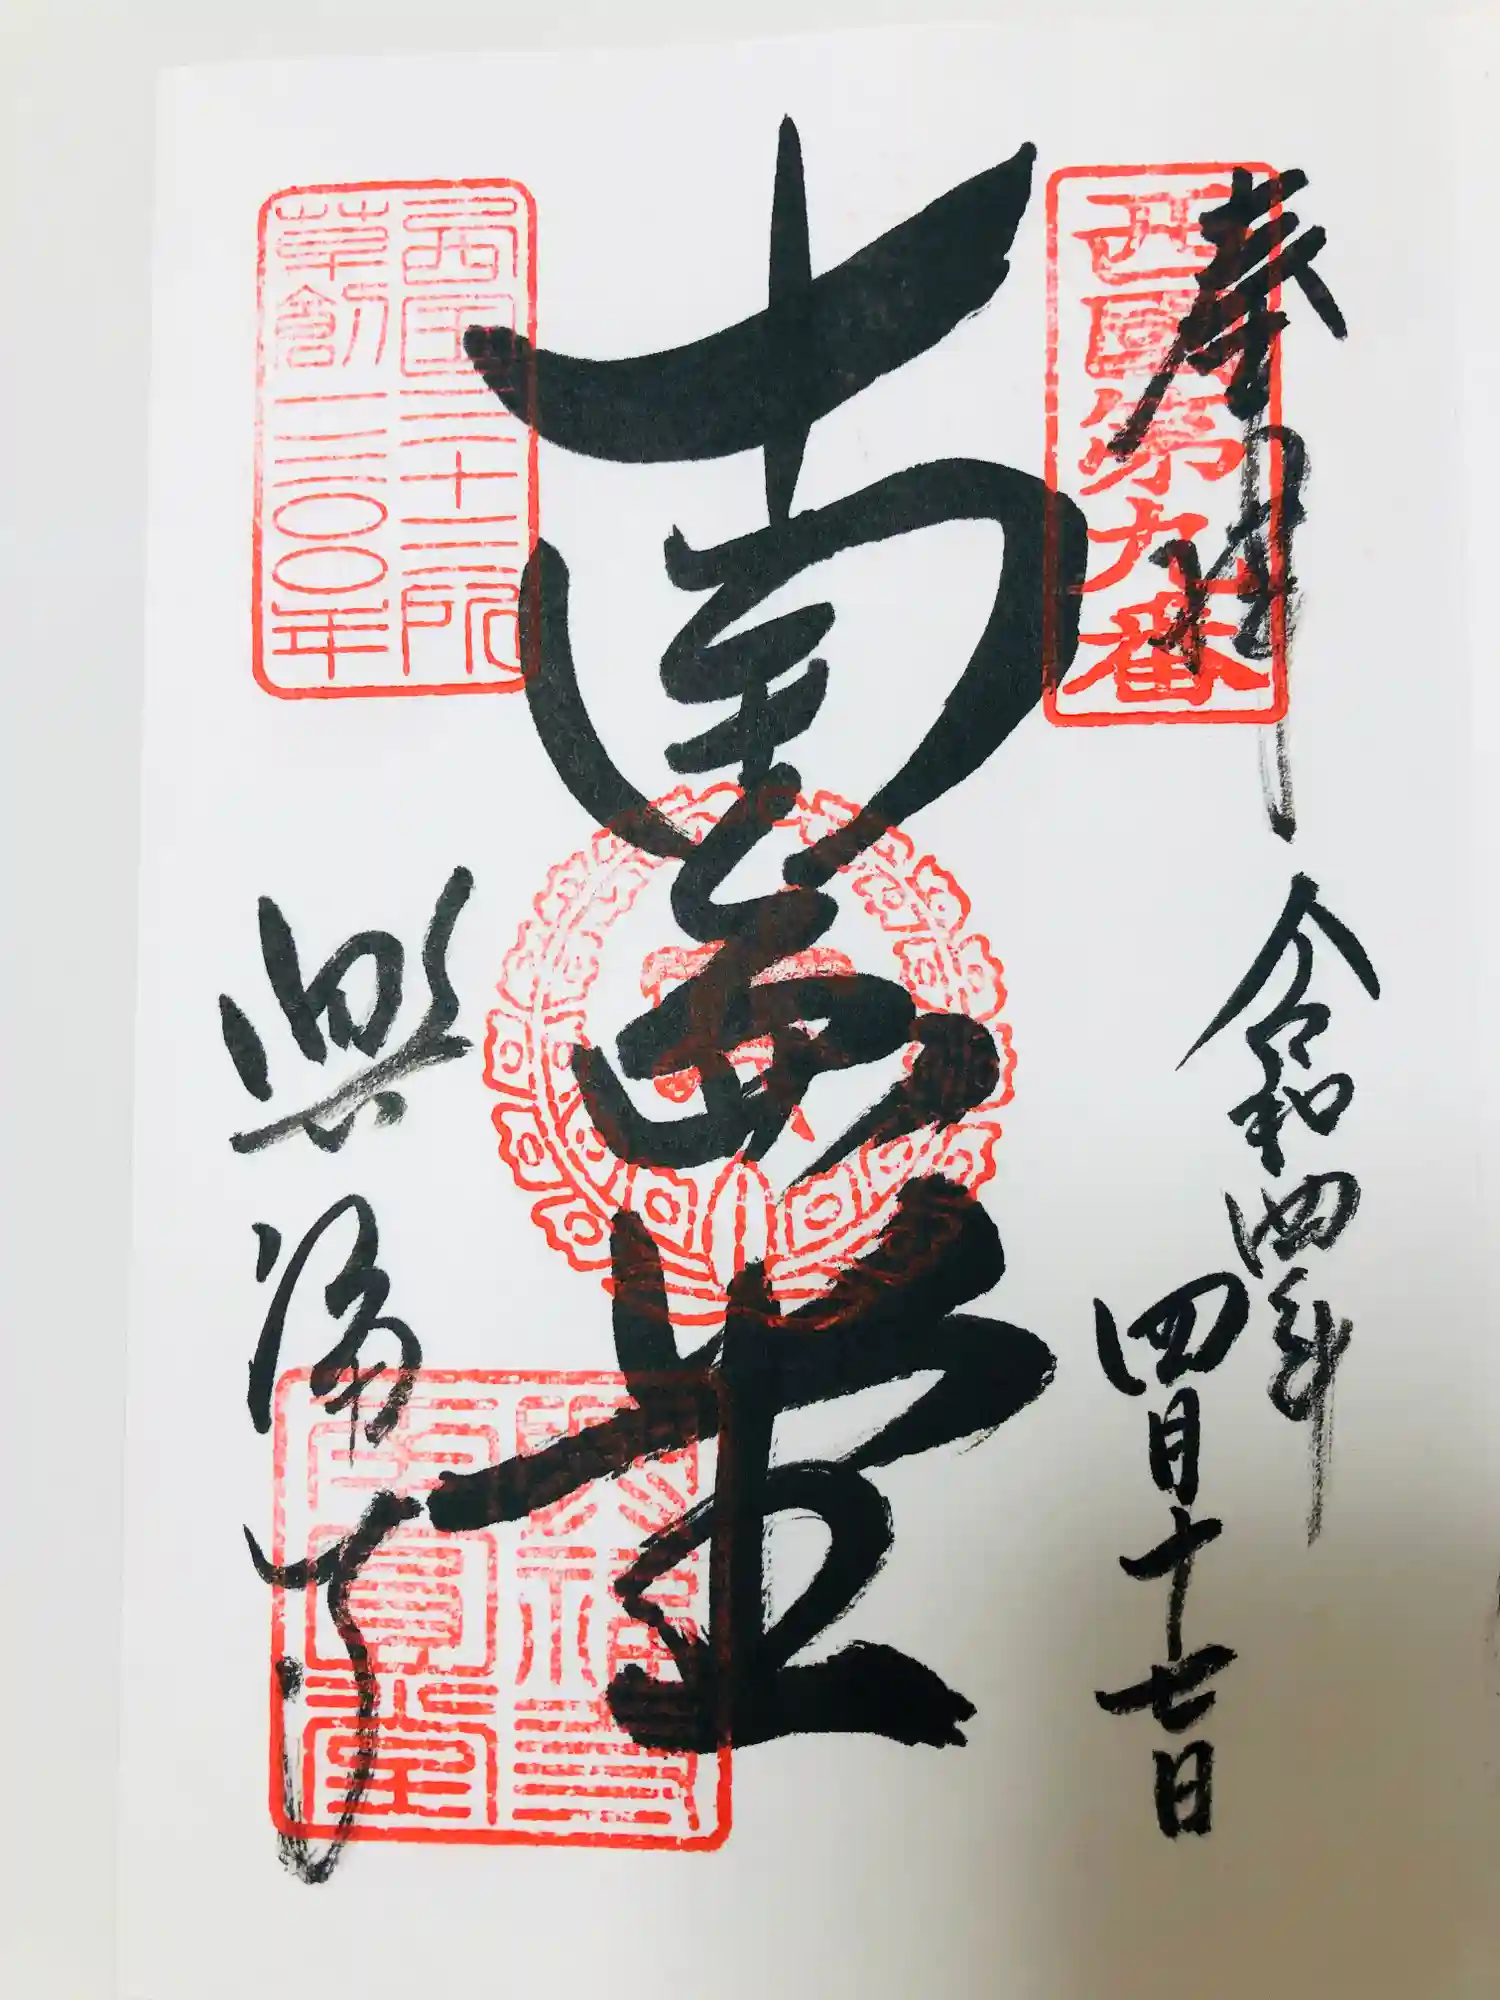 奉拝
西國第九番
令和四年
四月十七日
南円堂
西国三十三所
草創一三〇〇年
興福寺
南圓堂